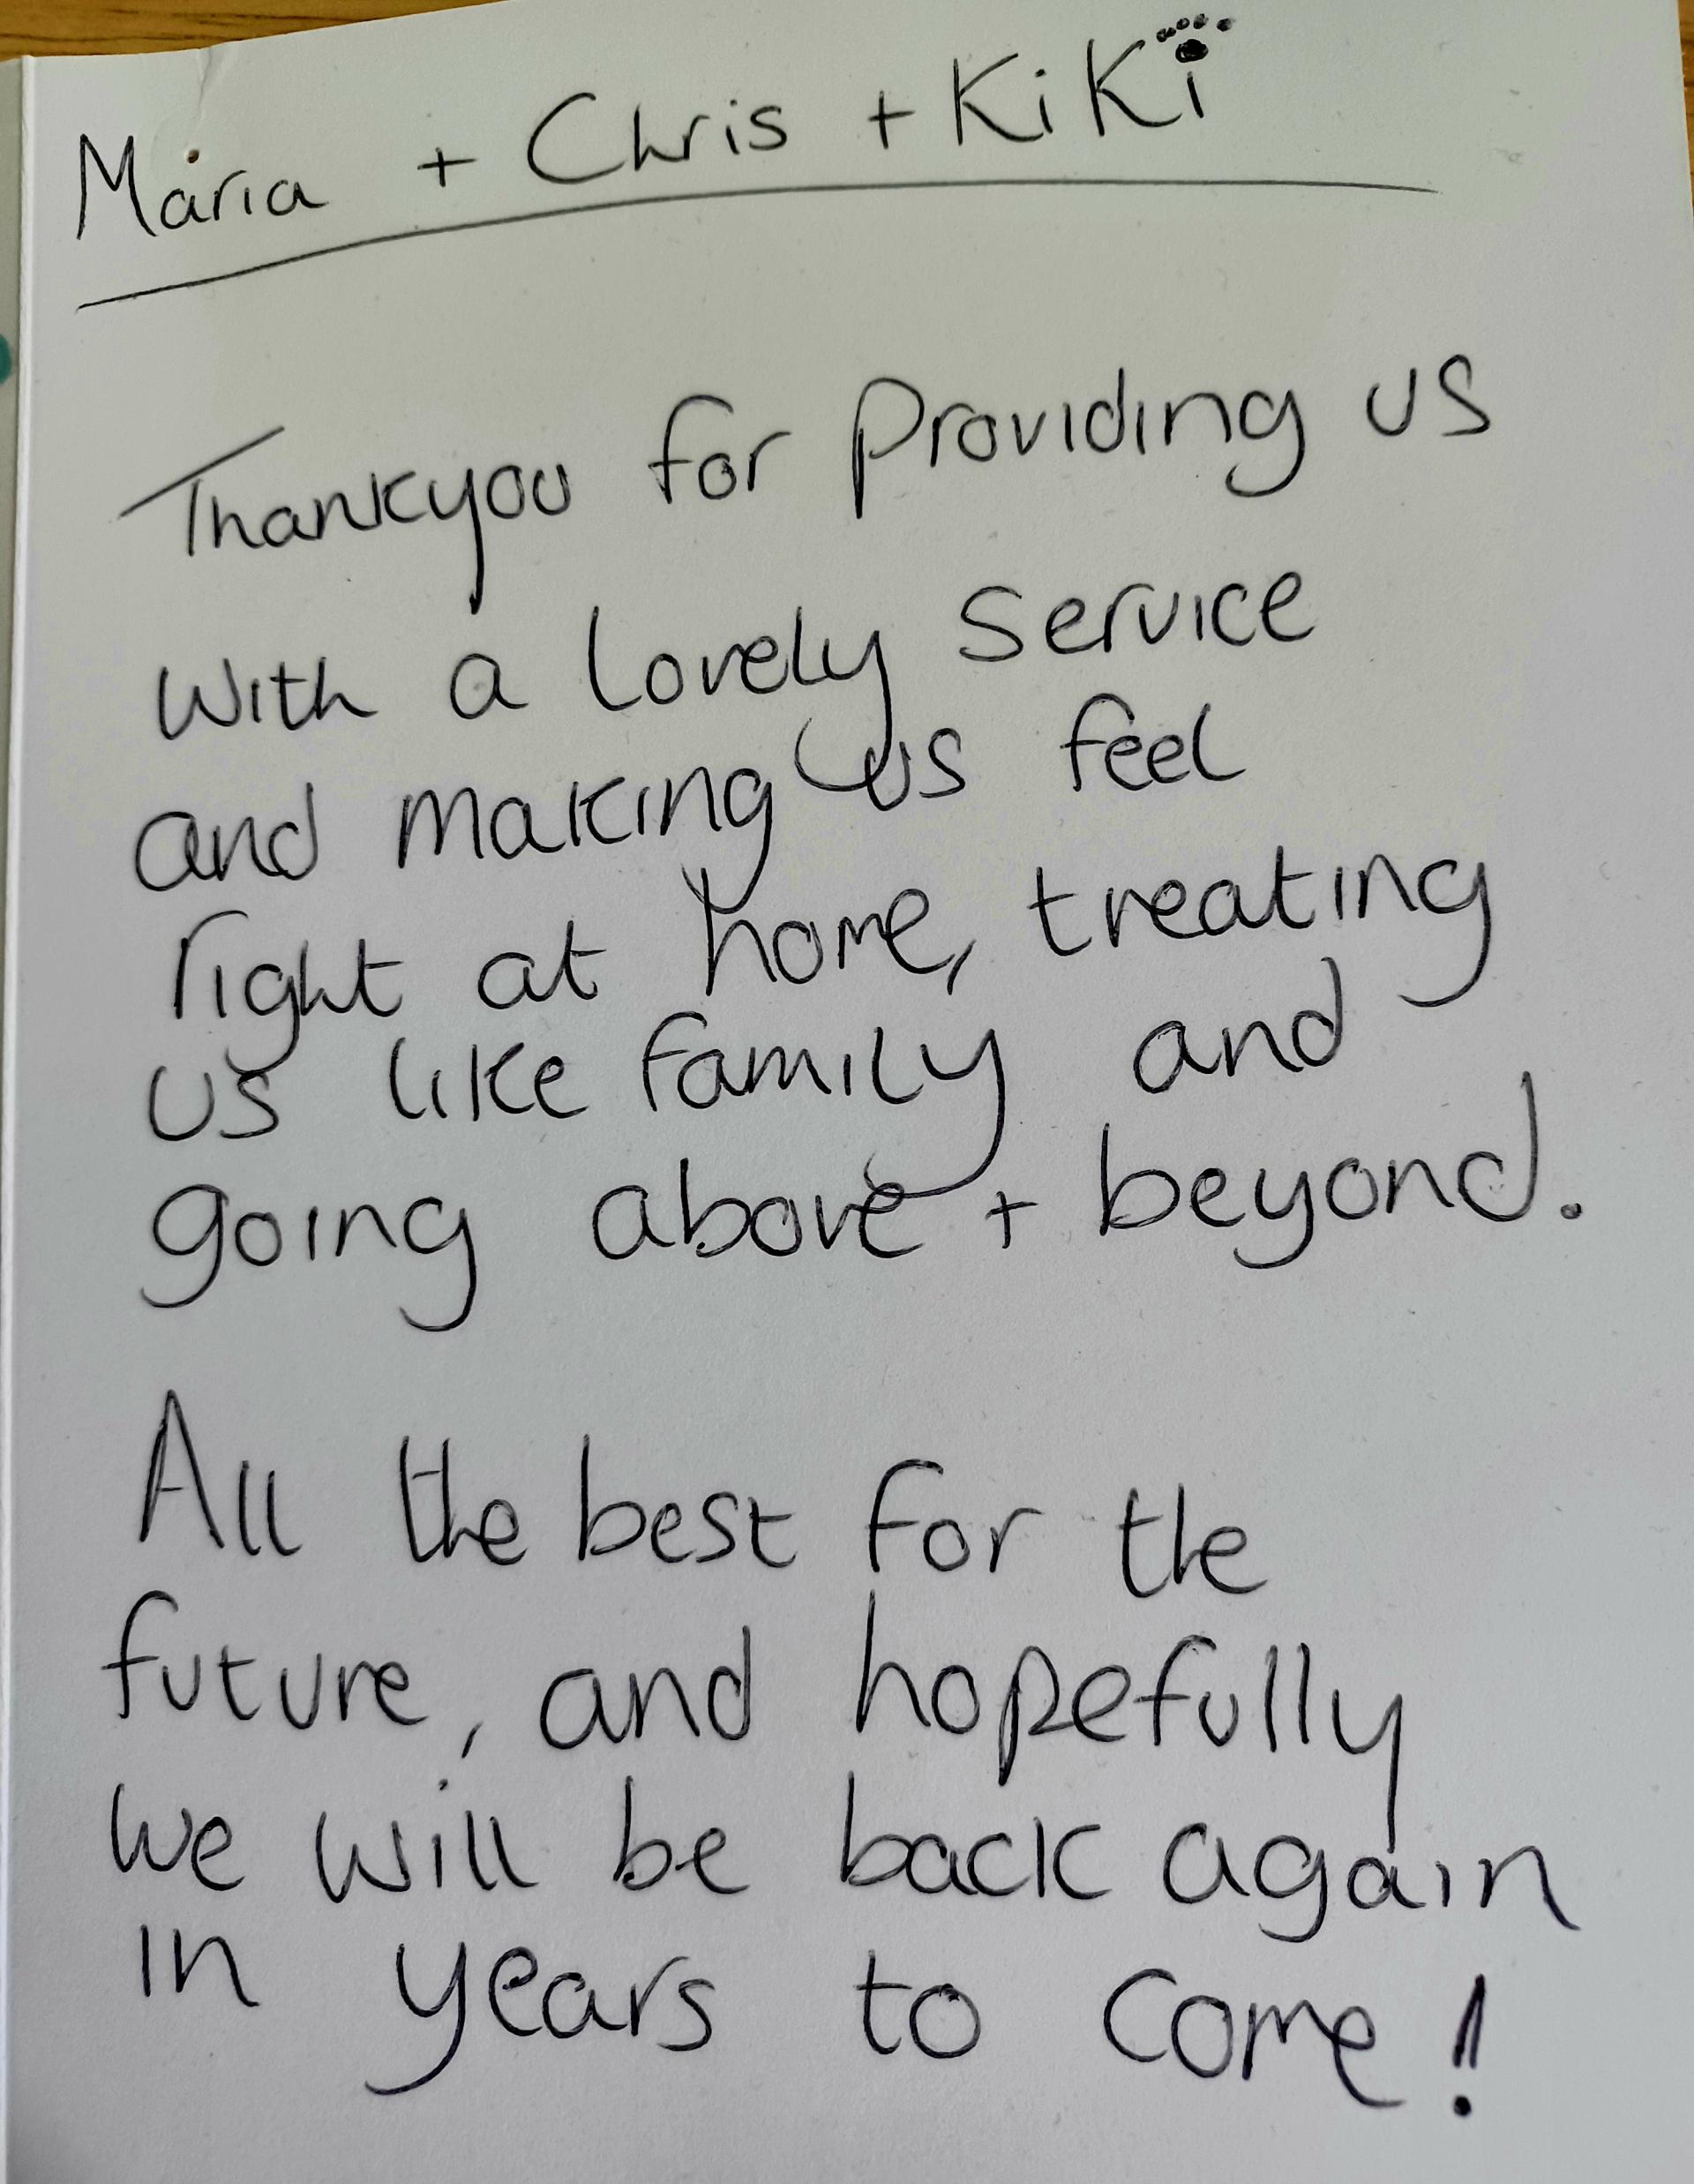 Maria + Chris + KiKi
Thankyou for Providing us
with a lovely service
and making us feel
right at home, treating
us like family and
going above + beyond.
All the best for the
future, and hopefully
we will be back again
in years to come!